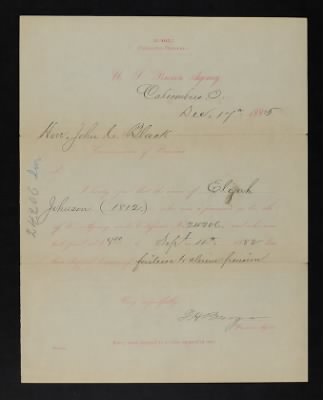 U. S. Pension Agency,
Columbus, O.
Dec. 17th, 1885
Hon. John C. Black
Commissioner of Pensions
I that the name of Elijah
Johnson (1812) who was a pensioner on the
of this Agency under Certificate No. 24206 and who was
last paid at $ 8.00 to Sept. 11th 1882 has
been dropped because of failure to claim pension
Very respectfully,
Pension Agent.
24206